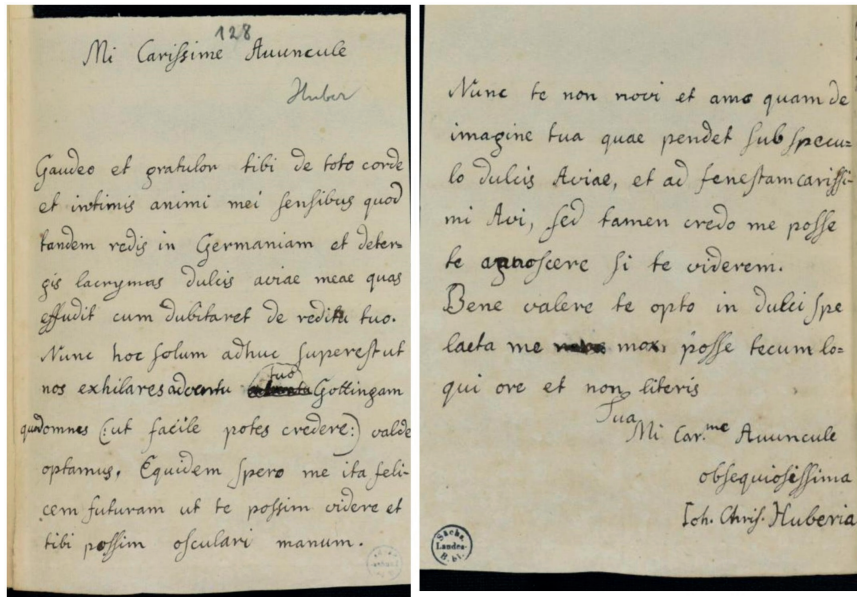 128
Mi Carissime Avuncule
Huber
Gaudeo et gratulor tibi de toto corde
et intimis animi mei sensibus quod
tandem redis in Germaniam et deter-
gis lacrymas dulcis aviae meae quas
effudit cum dubitaret de reditu tuo.
Nunc hoc solum adhuc superest ut
nos exhilares adventu tuo Gottingam
quod omnes (:ut facile potes credere:) valde
optamus. Equidem spero me ita feli-
cem futuram ut te possim videre et
tibi possim osculari manum.
Nunc te non novi et amo quam de
imagine tua quae pendet sub specu-
lo dulcis Aviae, et ad fenestam carissi-
mi Avi, sed tamen credo me posse
te agnoscere si te viderem.
Bene valere te opto in dulci spe
laeta me mox, posse tecum lo-
qui ore et non literis
Tua
Mi Car.me Avuncule
obsequiosissima
Joh. Chris. Huberia
Sächs.
Landes-
Bibl.